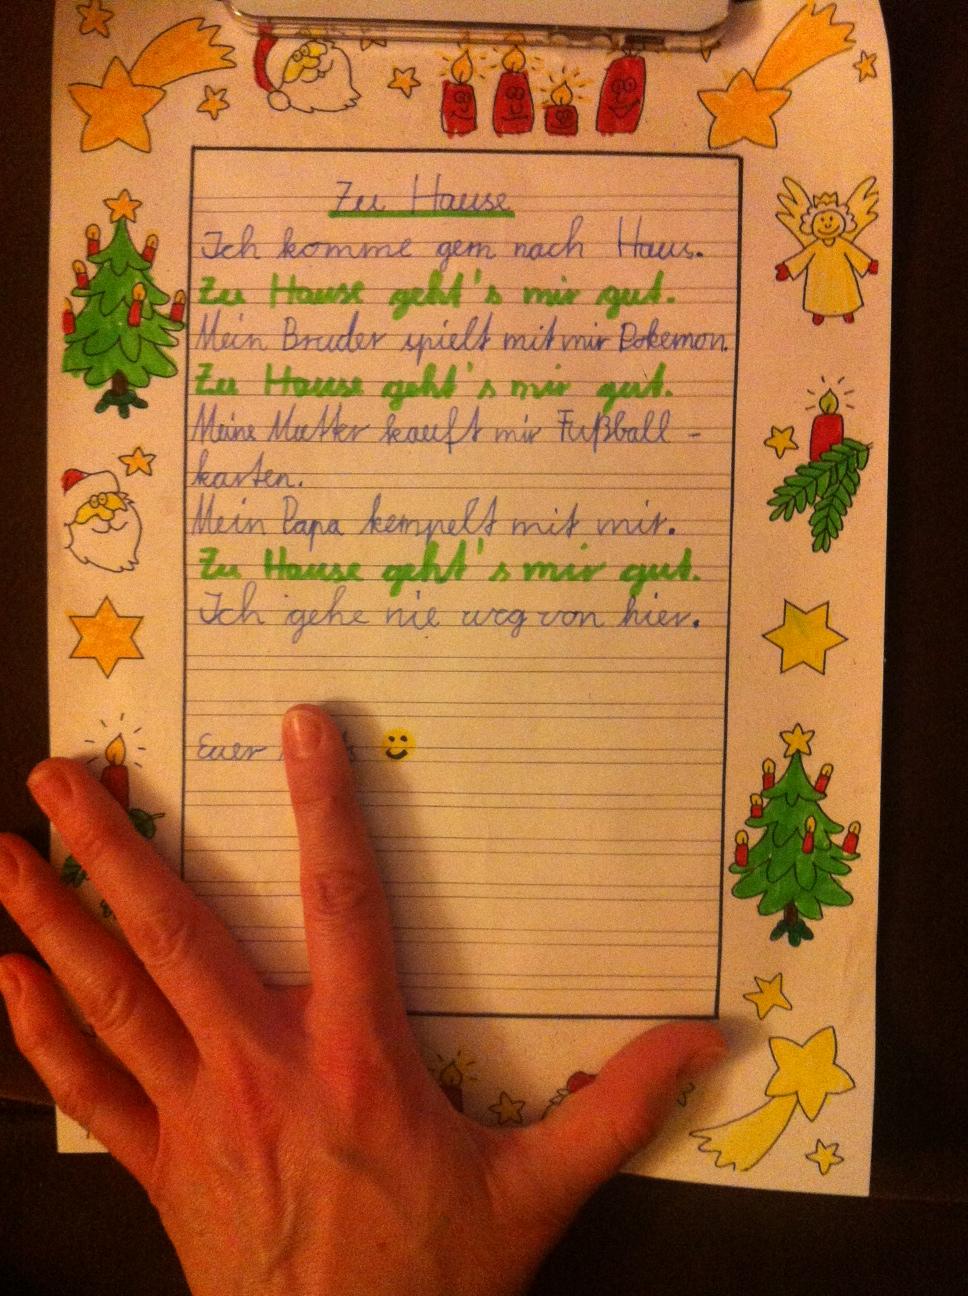 Zu Hause
Ich komme gern nach Haus.
Zu Hause geht's mir gut.
Mein Bruder spielt mit mir Pokemon.
Zu Hause geht's mir gut.
Meine Mutter kauft mir Fußball-
karten.
Mein Papa kempelt mit mir.
Zu Hause geht's mir gut.
Ich gehe nie weg von hier.
Euer